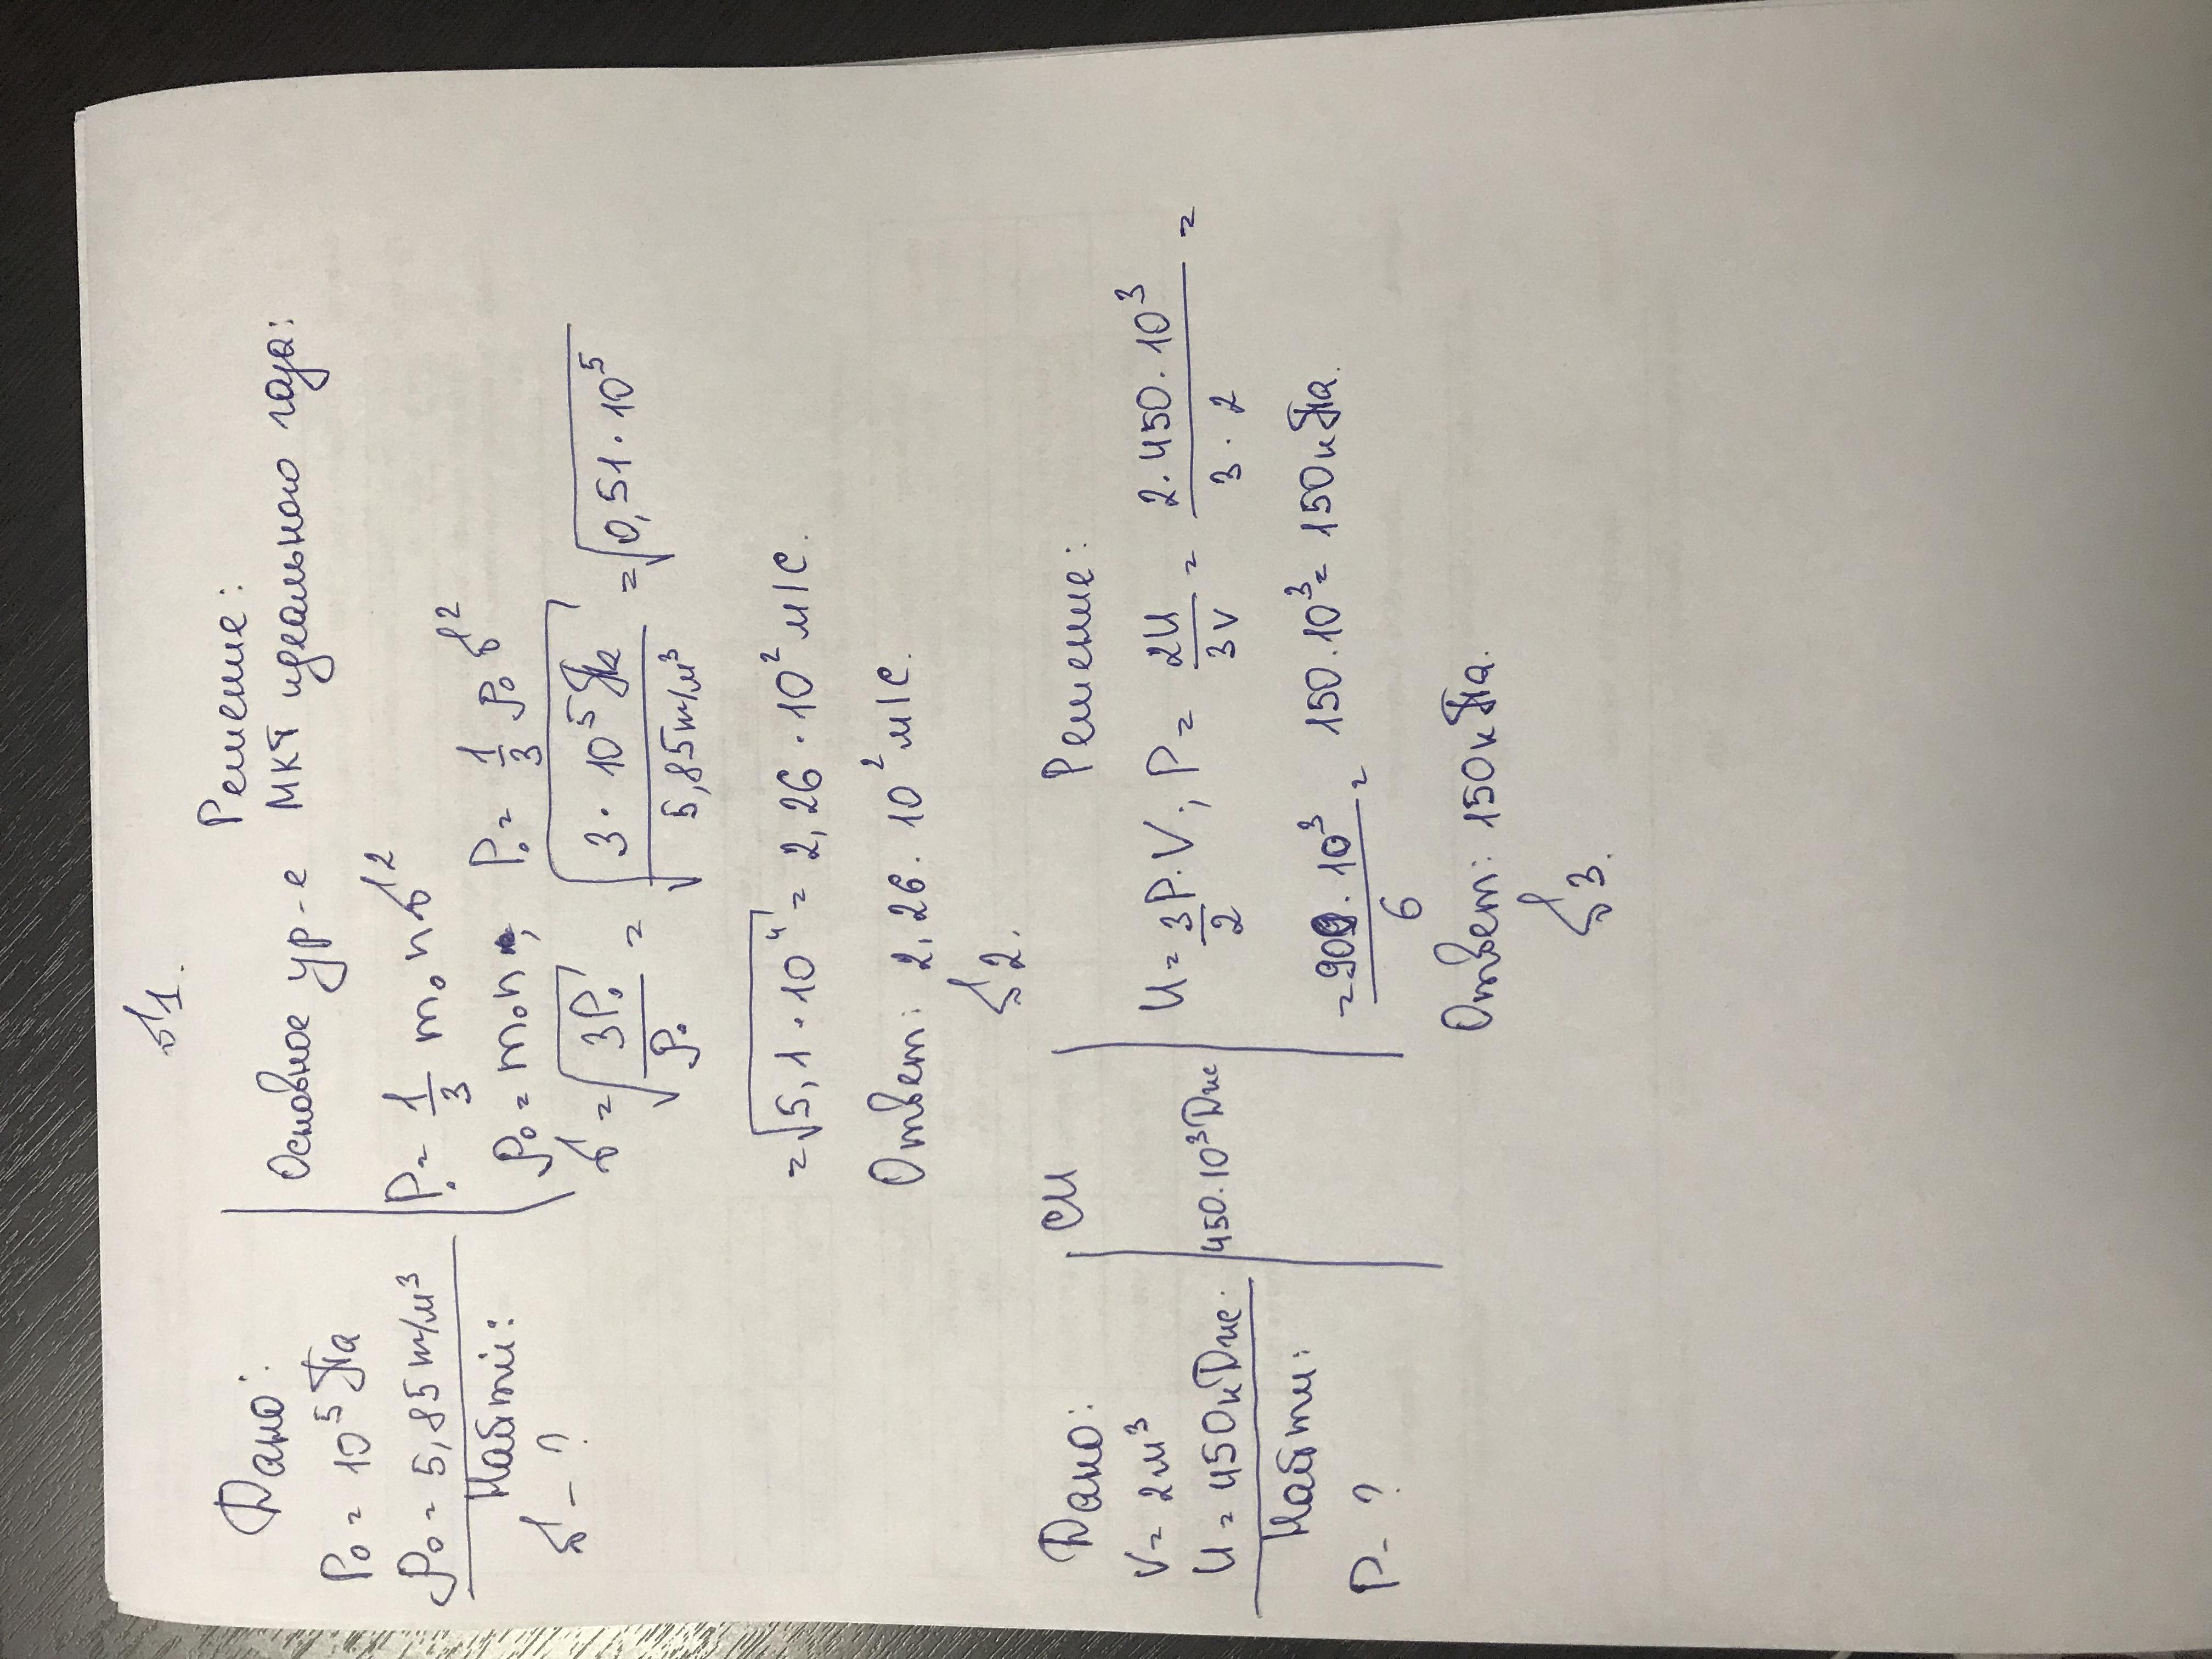 √1.
Дано:
P₀ = 10⁵ Па
ρ₀ = 5,85 кг/м³
Найти:
υ - ?
Решение:
Основное ур-е МКТ идеального газа:
P₀ = 1/3 m₀ n υ²
ρ₀ = m₀n; P₀ = 1/3 ρ₀ υ²
υ = √(3P₀/ρ₀) = √(3 · 10⁵ Па / 5,85 кг/м³) = √(0,51 · 10⁵)
= √(5,1 · 10⁴) = 2,26 · 10² м/с.
Ответ: 2,26 · 10² м/с.
√2.
Дано:
V = 2м³
U = 450кДж.
Найти:
P - ?
СИ
450·10³Дж
Решение:
U = 3/2 P·V; P = 2U/3V = 2·450·10³ / 3·2 =
= 900·10³ / 6 = 150·10³ = 150кПа.
Ответ: 150кПа.
√3.